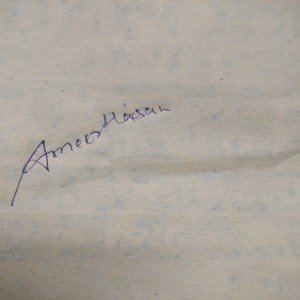 Ameer Hasan